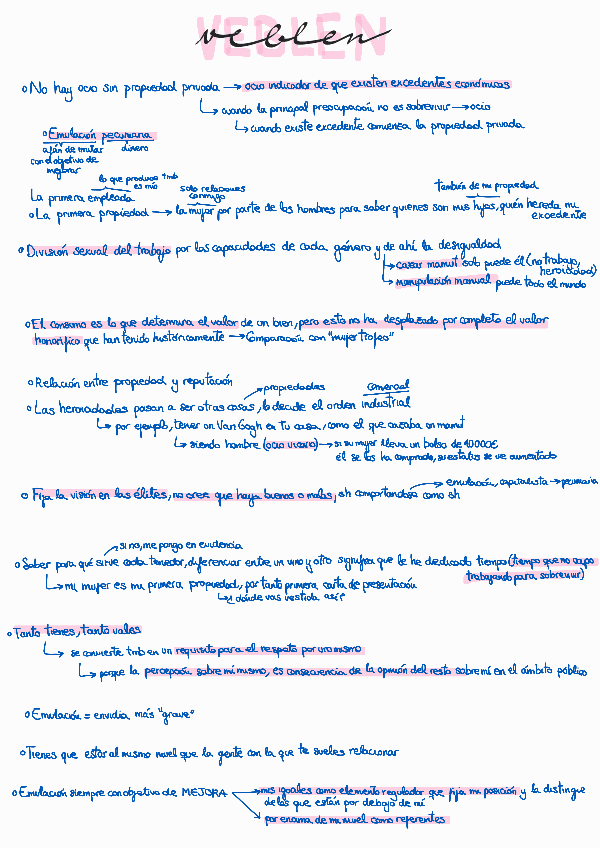 VEBLEN
veblen
No hay ocio sin propiedad privada → ocio indicador de que existen excedentes económicos
cuando la principal preocupación no es sobrevivir → ocio
cuando existe excedente comienza la propiedad privada
Emulación pecuniaria
afán de imitar dinero
con el objetivo de
mejorar
lo que produce tmb
es mío
solo relaciones
conmigo
también de mi propiedad
La primera empleada
La primera propiedad → la mujer por parte de los hombres para saber quienes son mis hijos, quién hereda mi
excedente
División sexual del trabajo por las capacidades de cada género y de ahí la desigualdad
cazar mamut solo puede él (no trabajo,
heroicidad)
manipulación manual puede todo el mundo
El consumo es lo que determina el valor de un bien, pero esto no ha desplazado por completo el valor
honorífico que han tenido históricamente → Comparación con "mujer trofeo"
Relación entre propiedad y reputación
propiedades comercial
Las heroicidades pasan a ser otras cosas, lo decide el orden industrial
por ejemplo, tener un Van Gogh en tu casa, como el que cazaba un mamut
siendo hombre (ocio vicario) → si su mujer lleva un bolso de 10000€
él se los ha comprado, su estatus se ve aumentado
emulación, capitalista → pecuniaria
Fija la visión en las élites, no cree que haya buenos o malos, sh comportándose como sh
si no, me pongo en evidencia
Saber para qué sirve cada tenedor, diferenciar entre un vino y otro significa que le he dedicado tiempo (tiempo que no
trabajando para sobrevivir)
mi mujer es mi primera propiedad, por tanto primera carta de presentación
¿dónde vas vestida así?
Tanto tienes, tanto vales
se convierte tmb en un requisito para el respeto por uno mismo
porque la percepción sobre mí mismo, es consecuencia de la opinión del resto sobre mí en el ámbito público
Emulación = envidia más "grave"
Tienes que estar al mismo nivel que la gente con la que te sueles relacionar
Emulación siempre con objetivo de MEJORA → mis iguales como elemento regulador que fija mi posición y la distingue
de los que están por debajo de mí
por encima de mi nivel como referentes